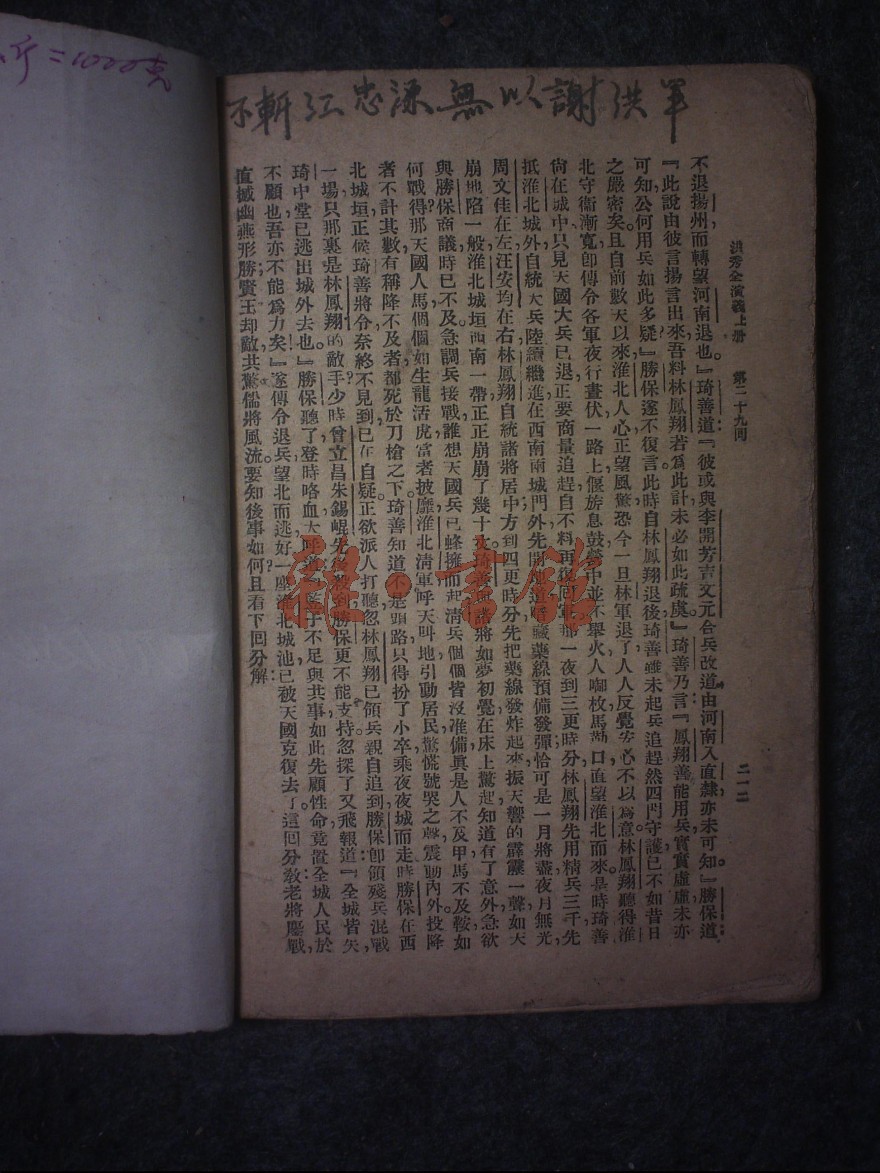 斤=1000克
不斬江忠源無以謝洪軍
洪秀全演義上册 第二十九回 二一二
不退揚州而轉望河南退也。』琦善道：『彼或與李開芳吉文元合兵改道由河南入直隸亦未可知。』勝保道：
『此說由彼言揚言出來吾料林鳳翔若爲此計未必如此疏虞。』琦善乃言：『鳳翔善能用兵實實虛虛未亦
可知，公何用兵如此多疑』勝保遂不復言此時自林鳳翔退後琦善雖未起兵追趕然四門守護已不如昔日
之嚴密矣且自前數天以來淮北人心正望風驚恐今一旦林軍退了人人反覺安心不以爲意林鳳翔聽得淮
北守衞漸寬卽傳令各軍夜行晝伏一路上偃旂息鼓聲中並不舉火人啣枚馬勒口直望淮北而來是時琦善
尙在城中只見天國大兵已退正要商量追趕自不料再復回軍那一夜到三更時分林鳳翔先用精兵三千先
抵淮北城外自統大兵陸續繼進在西南兩城門外先開地道暗藏藥線預備發彈恰可是一月將盡夜月無光，
周文佳在左汪安均在右林鳳翔自統諸將居中方到四更時分先把藥線發炸起來振天響的霹靂一聲如天
崩地陷一般淮北城垣西南一帶正正崩崩了幾十丈琦善與諸將如夢初覺在床上驚起知道有了意外急欲
與勝保商議時已不及急調兵接戰誰想天國兵已蜂擁而起淸兵個個皆沒准備眞是人不及甲馬不及鞍如
何戰得那天國人馬個個如生龍活虎當者披靡淮北淸軍呼天叫地引動居民驚慌號哭之聲震動內外投降
者不計其數有稱降不及者都死於刀槍之下。琦善知道不是頭路只得扮了小卒乘夜夜城而走時勝保在西
北城垣正候琦善將令奈終不見到已在自疑正欲派人打聽忽林鳳翔已領兵親自追到勝保卽領殘兵混戰
一場只那裏是林鳳翔的敵手少時曾立昌朱錫崐先後殺到勝保更不能支持忽探子又飛報道：『全城皆失，
琦中堂已逃出城外去也。』勝保聽了登時咯血大呼道『豎子不足與共事如此先顧性命竟置全城人民於
不顧也吾亦不能爲力矣』遂傳令退兵望北而逃好一座淮北城池已被天國克復去了這回分敎老將鏖戰，
直撼幽燕形勝賢王却敵共驚儒將風流。要知後事如何？且看下回分解：